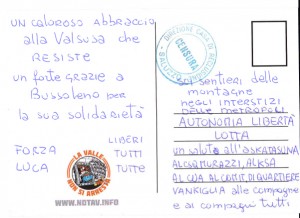 UN CALOROSO ABBRACCIO
alla Valsusa che
RESISTE
un forte grazie a
Bussoleno per
la sua solidarietà
LIBERI
FORZA TUTTI
LUCA TUTTE
LA VALLE
NON SI ARRESTA
WWW.NOTAV.INFO
CENSURA
sui sentieri delle
montagne
negli interstizi
delle metropoli
AUTONOMIA LIBERTÀ
LOTTA
un saluto all'ASKATASUNA
AL CSA MURAZZI, AL KSA
AL CUA AL COMIT. DI QUARTIERE
VANCHIGLIA alle compagne
e ai compagni tutti